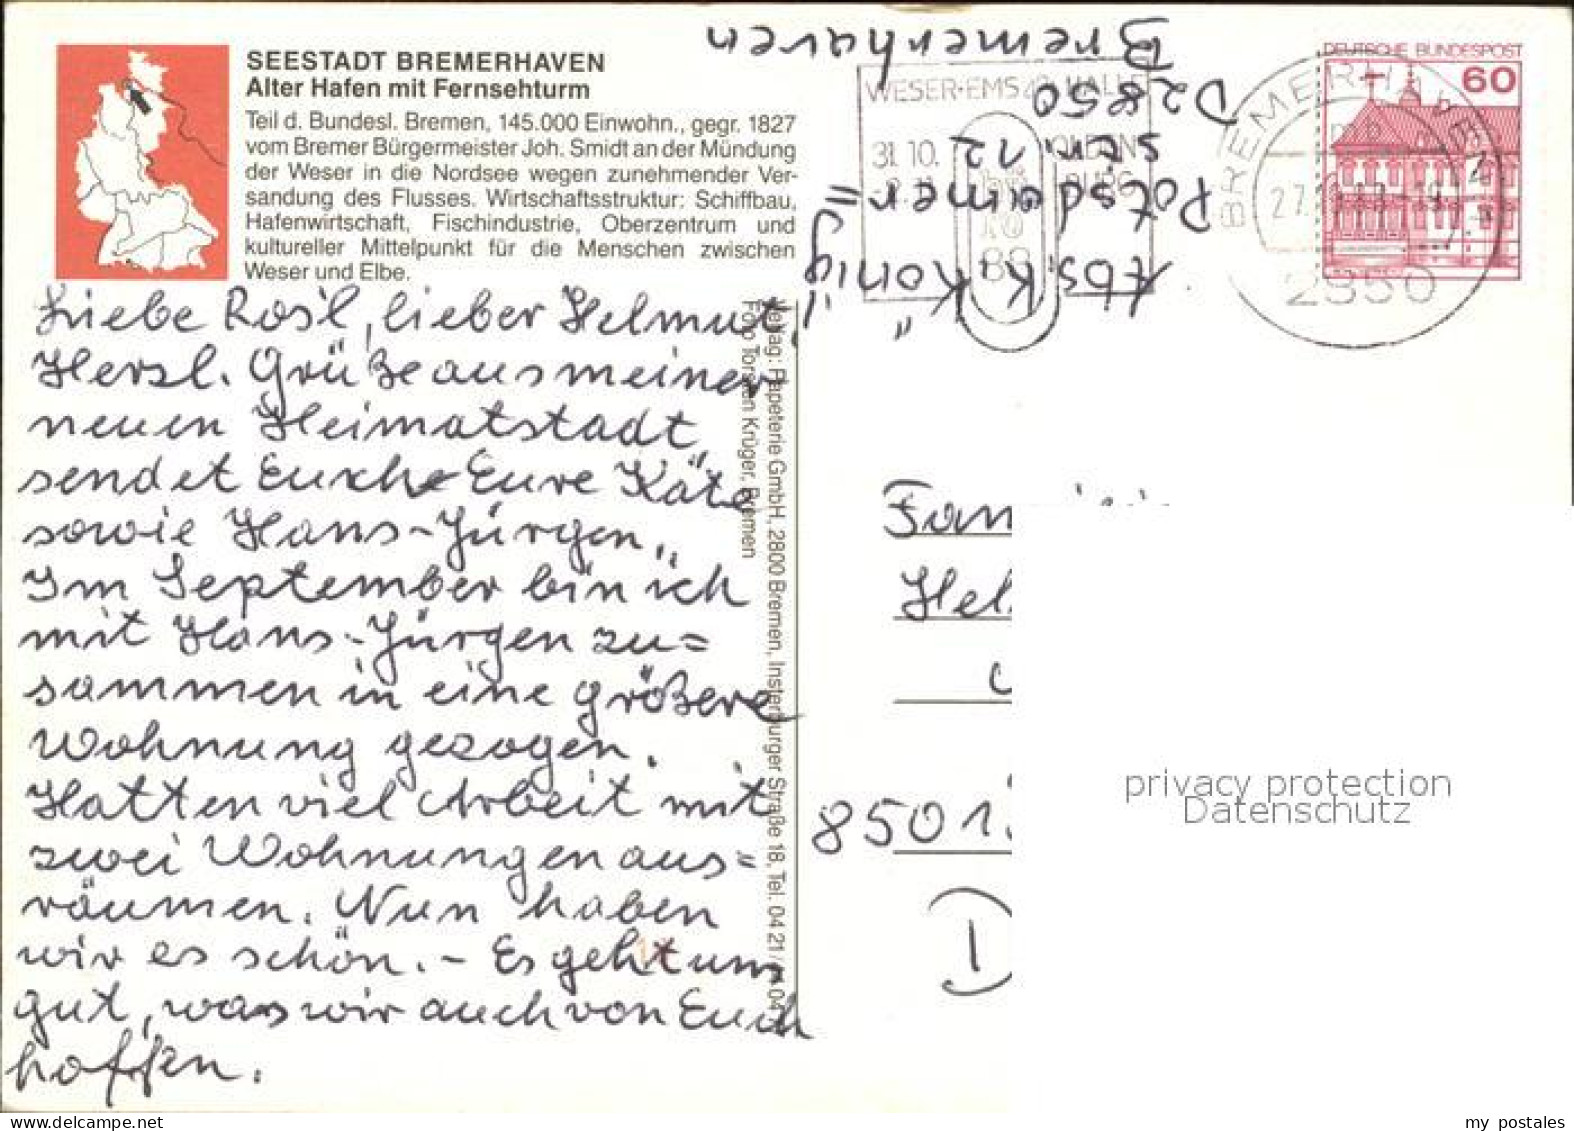 SEESTADT BREMERHAVEN
Alter Hafen mit Fernsehturm
Teil d. Bundesl. Bremen, 145.000 Einwohn., gegr. 1827
vom Bremer Bürgermeister Joh. Smidt an der Mündung
der Weser in die Nordsee wegen zunehmender Ver-
sandung des Flusses. Wirtschaftsstruktur: Schiffbau,
Hafenwirtschaft, Fischindustrie, Oberzentrum und
kultureller Mittelpunkt für die Menschen zwischen
Weser und Elbe.
Liebe Rosl, lieber Helmut,
Herzl. Grüße aus meiner
neuen Heimatstadt,
sendet Euch Eure Käte
sowie Hans-Jürgen.
Im September bin ich
mit Hans-Jürgen zu=
sammen in eine größere
Wohnung gezogen.
Hatten viel Arbeit mit
zwei Wohnungen aus=
räumen. Nun haben
wir es schön. - Es geht uns
gut, was wir auch von Euch
hoffen.
Verlag: Papeterie GmbH, 2800 Bremen, Insterburger Straße 18, Tel. 04 21 /
Foto Torsten Krüger, Bremen
Abs. K. König
Potsdamer=
str. 12
D2850
Bremerhaven
WESER-EMS HALLE
31.10.
OLDEN
BURG
88
BREMERHAVEN
2850
DEUTSCHE BUNDESPOST
60
Fam
Hel
8501
D
privacy protection
Datenschutz
my postales